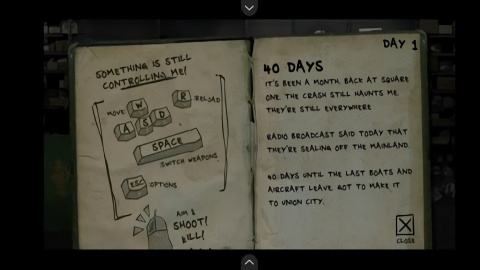 SOMETHING IS STILL
CONTROLLING ME!
MOVE W R RELOAD
A S D
SPACE
SWITCH WEAPONS
ESC OPTIONS
AIM &
SHOOT!
KILL!
DAY 1
40 DAYS
IT'S BEEN A MONTH. BACK AT SQUARE
ONE. THE CRASH STILL HAUNTS ME.
THEY'RE STILL EVERYWHERE
RADIO BROADCAST SAID TODAY THAT
THEY'RE SEALING OFF THE MAINLAND.
40 DAYS UNTIL THE LAST BOATS AND
AIRCRAFT LEAVE. GOT TO MAKE IT
TO UNION CITY.
CLOSE